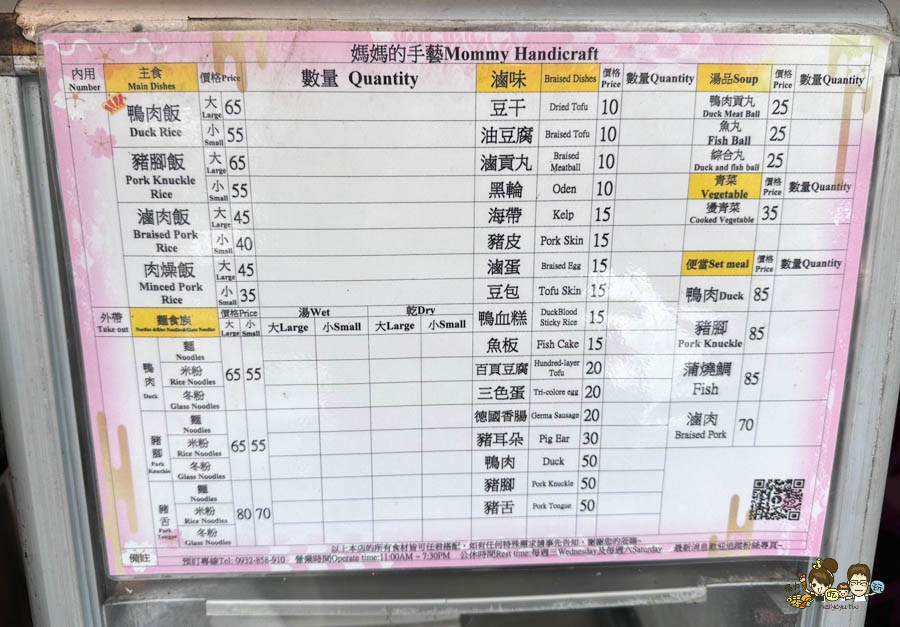 媽媽的手藝Mommy Handicraft
內用 Number 主食 Main Dishes 價格Price 數量 Quantity
鴨肉飯 Duck Rice 大 Large 65
小 Small 55
豬腳飯 Pork Knuckle Rice 大 Large 65
小 Small 55
滷肉飯 Braised Pork Rice 大 Large 45
小 Small 40
肉燥飯 Minced Pork Rice 大 Large 45
小 Small 35
外帶 Take out 麵食族 Noodles &Rice Noodles&Glass Noodles 價格Price 大 Large 小 Small 湯Wet 乾Dry
大Large 小Small 大Large 小Small
鴨肉 Duck 麵 Noodles 米粉 Rice Noodles 冬粉 Glass Noodles 65 55
豬腳 Pork Knuckle 麵 Noodles 米粉 Rice Noodles 冬粉 Glass Noodles 65 55
豬舌 Pork Tongue 麵 Noodles 米粉 Rice Noodles 冬粉 Glass Noodles 80 70
滷味 Braised Dishes 價格 Price 數量Quantity
豆干 Dried Tofu 10
油豆腐 Braised Tofu 10
滷貢丸 Braised Meatball 10
黑輪 Oden 10
海帶 Kelp 15
豬皮 Pork Skin 15
滷蛋 Braised Egg 15
豆包 Tofu Skin 15
鴨血糕 DuckBlood Sticky Rice 15
魚板 Fish Cake 15
百頁豆腐 Hundred-layer Tofu 20
三色蛋 Tri-colore egg 20
德國香腸 Germa Sausage 20
豬耳朵 Pig Ear 30
鴨肉 Duck 50
豬腳 Pork Knuckle 50
豬舌 Pork Tongue 50
湯品Soup 價格 Price 數量Quantity
鴨肉貢丸 Duck Meat Ball 25
魚丸 Fish Ball 25
綜合丸 Duck and fish ball 25
青菜 Vegetable 價格 Price 數量Quantity
燙青菜 Cooked Vegetable 35
便當Set meal 價格 Price 數量Quantity
鴨肉Duck 85
豬腳 Pork Knuckle 85
蒲燒鯛 Fish 85
滷肉 Braised Pork 70
備註 以上本店的所有食材皆可任君搭配，如有任何特殊需求請事先告知，謝謝您的蒞臨~
預訂專線Tel: 0932-858-910 營業時間Operate time:11:00AM - 7:30PM 公休時間Rest time:每週三Wednesday及每週六Saturday 最新消息歡迎追蹤粉絲專頁~
吃 玩